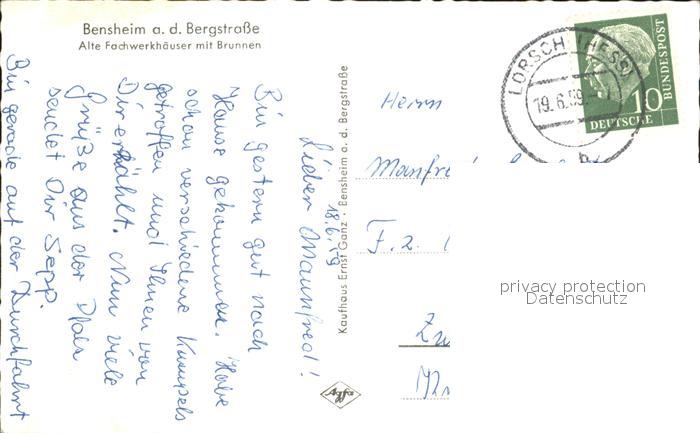 Bensheim a. d. Bergstraße
Alte Fachwerkhäuser mit Brunnen
18.6.59
Lieber Mannfred!
Bin gestern gut nach
Hause gekommen. Habe
schon verschiedene Kumpels
getroffen und Ihnen von
Dir erzählt. Nun viele
Grüße aus der Pfalz
sendet Dir Sepp.
Bin gerade auf der Durchfahrt
Kaufhaus Ernst Ganz · Bensheim a. d. Bergstraße
Agfa
LORSCH (HESS)
19.6.59
b
10
DEUTSCHE
BUNDESPOST
Herrn
Manfre
F. z.
Zu
privacy protection
Datenschutz